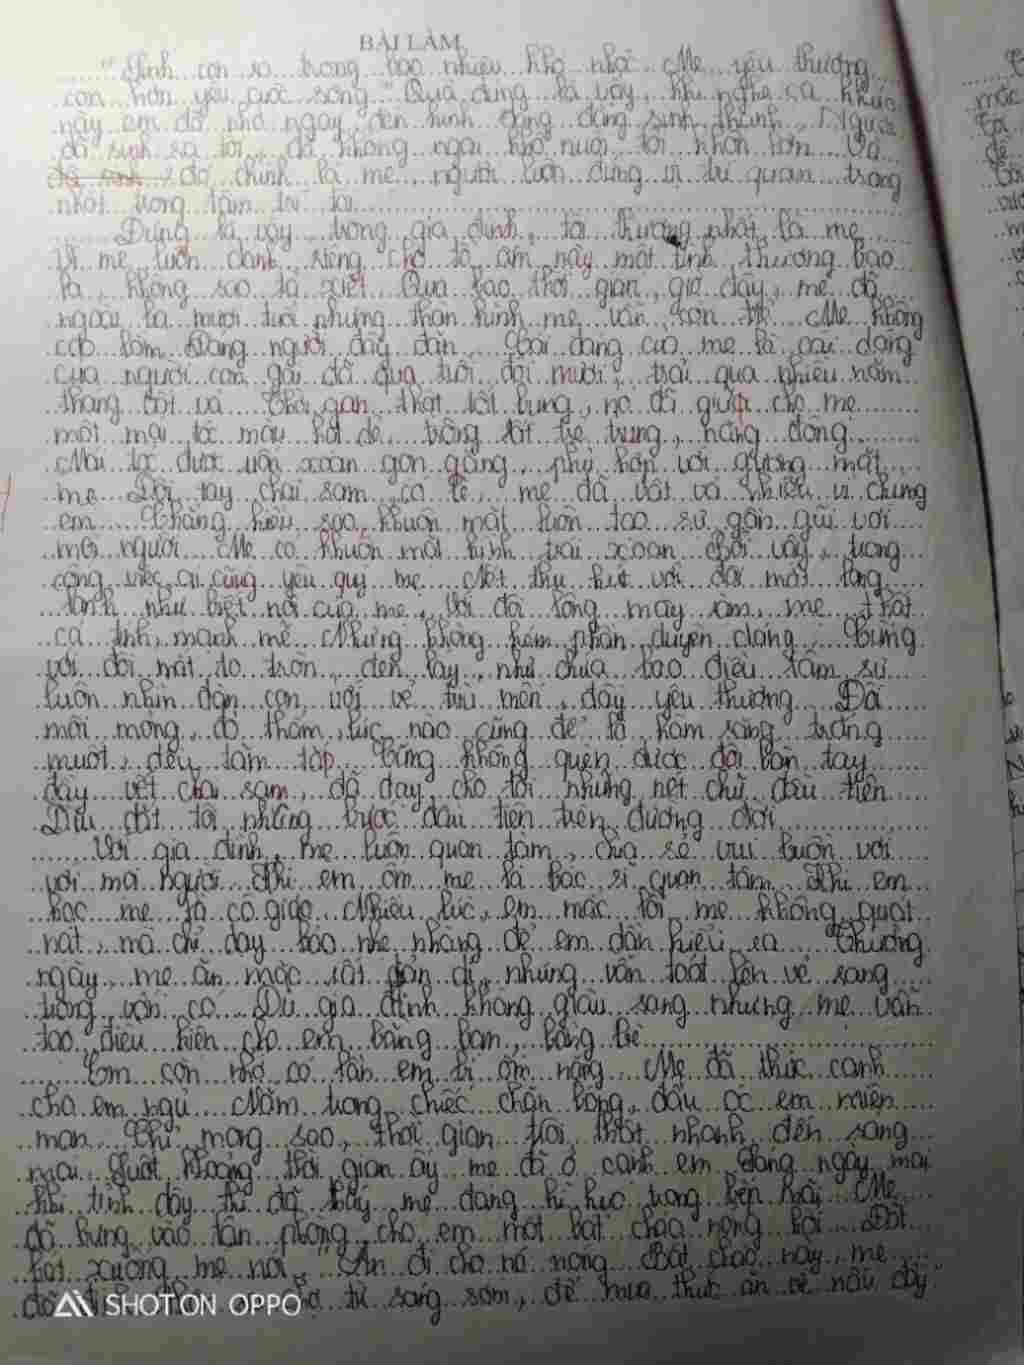 BÀI LÀM
"Sinh con ra trong bao nhiêu khó nhọc Mẹ yêu thương
con hơn yêu cuộc sống" Quả đúng là vậy, khi nghe ca khúc
này em đã nhớ ngay đến hình đấng sinh thành, Người
đã sinh ra tôi, đã không ngại khó nuôi tôi khôn lớn Và
đó chính là mẹ, người luôn đứng vị trí quan trọng
nhất trong tâm trí tôi
Đúng là vậy, trong gia đình, tôi thương nhất là mẹ
Vì mẹ luôn dành riêng cho tổ ấm này một tình thương bao
la, không sao tả xiết Qua bao thời gian, giờ đây, mẹ đã
ngoài ba mươi tuổi nhưng thân hình mẹ vẫn còn trẻ Mẹ không
cao lắm Dáng người đầy đặn, Cái dáng cao mẹ là cái dáng
của người con gái đã qua tuổi đôi mươi, trải qua nhiều năm
tháng vất vả Thời gian thật tốt bụng, nó đã giữ cho mẹ
một mái tóc màu hạt dẻ, trông rất trẻ trung, năng động
Mái tóc được uốn xoăn gọn gàng, phù hợp với gương mặt
mẹ Đôi tay chai sạm, có lẽ, mẹ đã vất vả nhiều vì chúng
em Chẳng hiểu sao, khuôn mặt luôn tạo sự gần gũi với
mọi người Mẹ có khuôn mặt hình trái xoan Bởi vậy, trong
công việc ai cũng yêu quý mẹ Nét thu hút với đôi mắt long
lanh như biết nói của mẹ, Với đôi lông mày rậm, mẹ thật
cá tính, mạnh mẽ Nhưng không kém phần duyên dáng Cùng
với đôi mắt to tròn, đen láy, như chứa bao điều tâm sự
luôn nhìn đàn con với vẻ trìu mến, đầy yêu thương Đôi
môi mỏng, đỏ thắm, lúc nào cũng để lộ hàm răng trắng
muốt, đều tăm tắp Cũng không quên được đôi bàn tay
đầy vết chai sạm, đã dạy cho tôi những nét chữ đầu tiên
Dìu dắt tôi những bước đầu tiên trên đường đời
Với gia đình, mẹ luôn quan tâm, chia sẻ vui buồn với
với mọi người Khi em ốm mẹ là bác sĩ quan tâm Khi em
học mẹ là cô giáo Nhiều lúc, em mắc lỗi mẹ không quát
nạt, mà chỉ dạy bảo nhẹ nhàng để em dần hiểu ra Thường
ngày, mẹ ăn mặc rất giản dị nhưng vẫn toát lên vẻ sang
trọng vốn có Dù gia đình không giàu sang nhưng mẹ vẫn
tạo điều kiện cho em bằng bạn, bằng bè
Em còn nhớ có lần em bị ốm nặng Mẹ đã thức canh
cho em ngủ Nằm trong chiếc chăn bông, đầu óc em miên
man Chỉ mong sao, thời gian trôi thật nhanh đến sáng
mai Suốt khoảng thời gian ấy mẹ đã ở cạnh em Sáng ngày mai
khi tỉnh dậy thì đã thấy mẹ đang hì hục trong bếp rồi Mẹ
đã bưng vào tận phòng cho em một bát cháo nóng hổi Đặt
bát xuống mẹ nói "Ăn đi cho nó nóng Bát cháo này mẹ
đã đi chợ từ sáng sớm, để mua thức ăn về nấu đấy"
SHOT ON OPPO